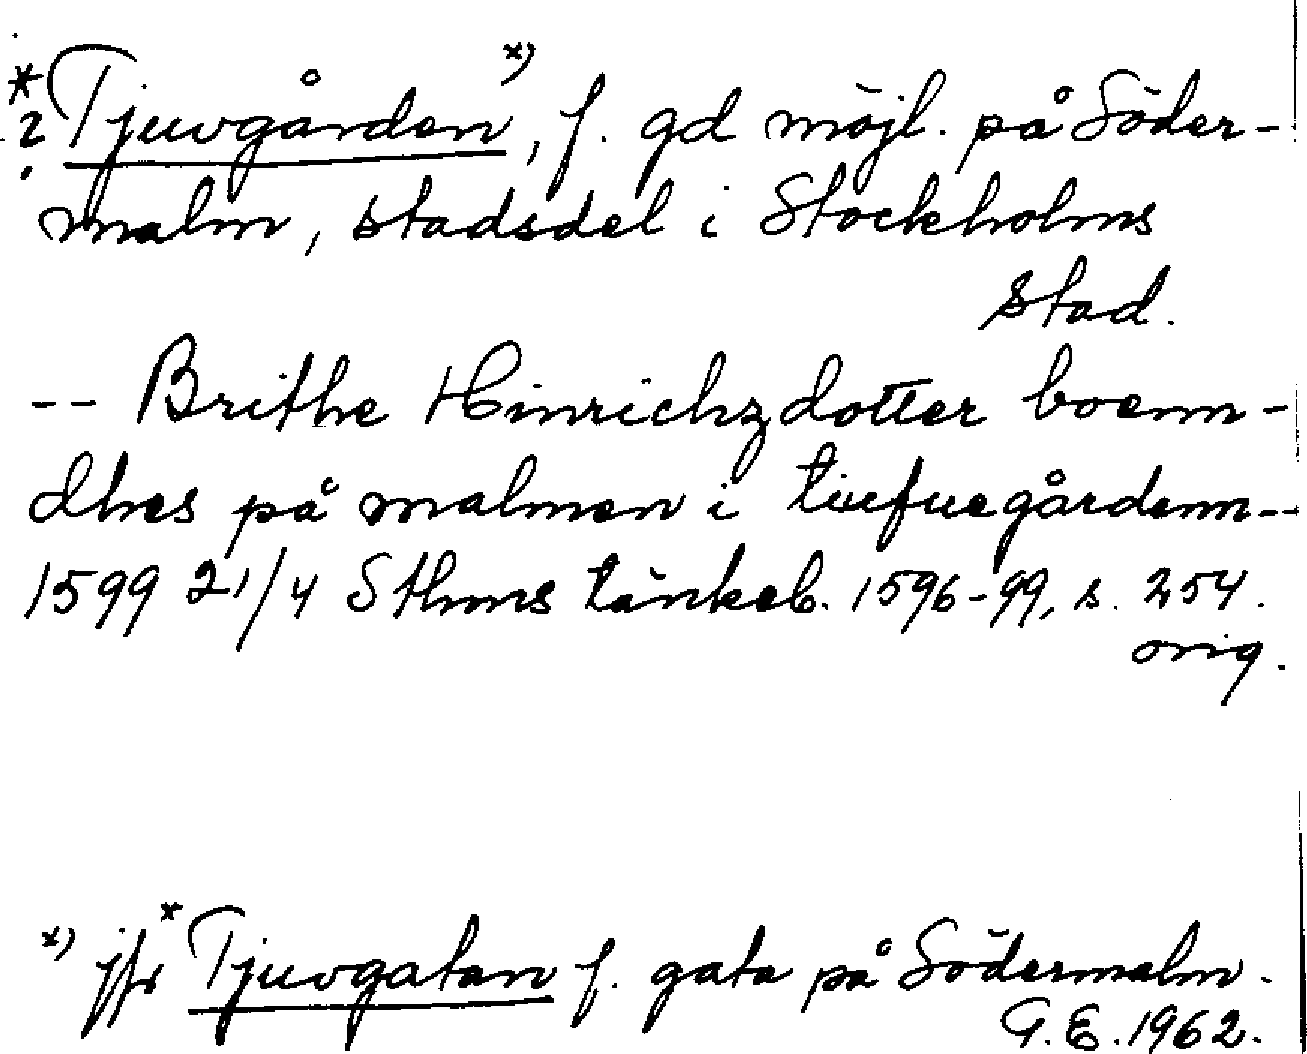 *? Tjuvgården *), f. gd möjl. på Söder-
malm, stadsdel i Stockholms
stad.
-- Brithe Hinrichzdotter boenn-
dhes på malmen i tiufuegårdenn--
1599 21/4 Sthms tänkeb. 1596-99, s. 254.
orig.
*) jfr *Tjuvgatan f. gata på Södermalm.
G.E. 1962.